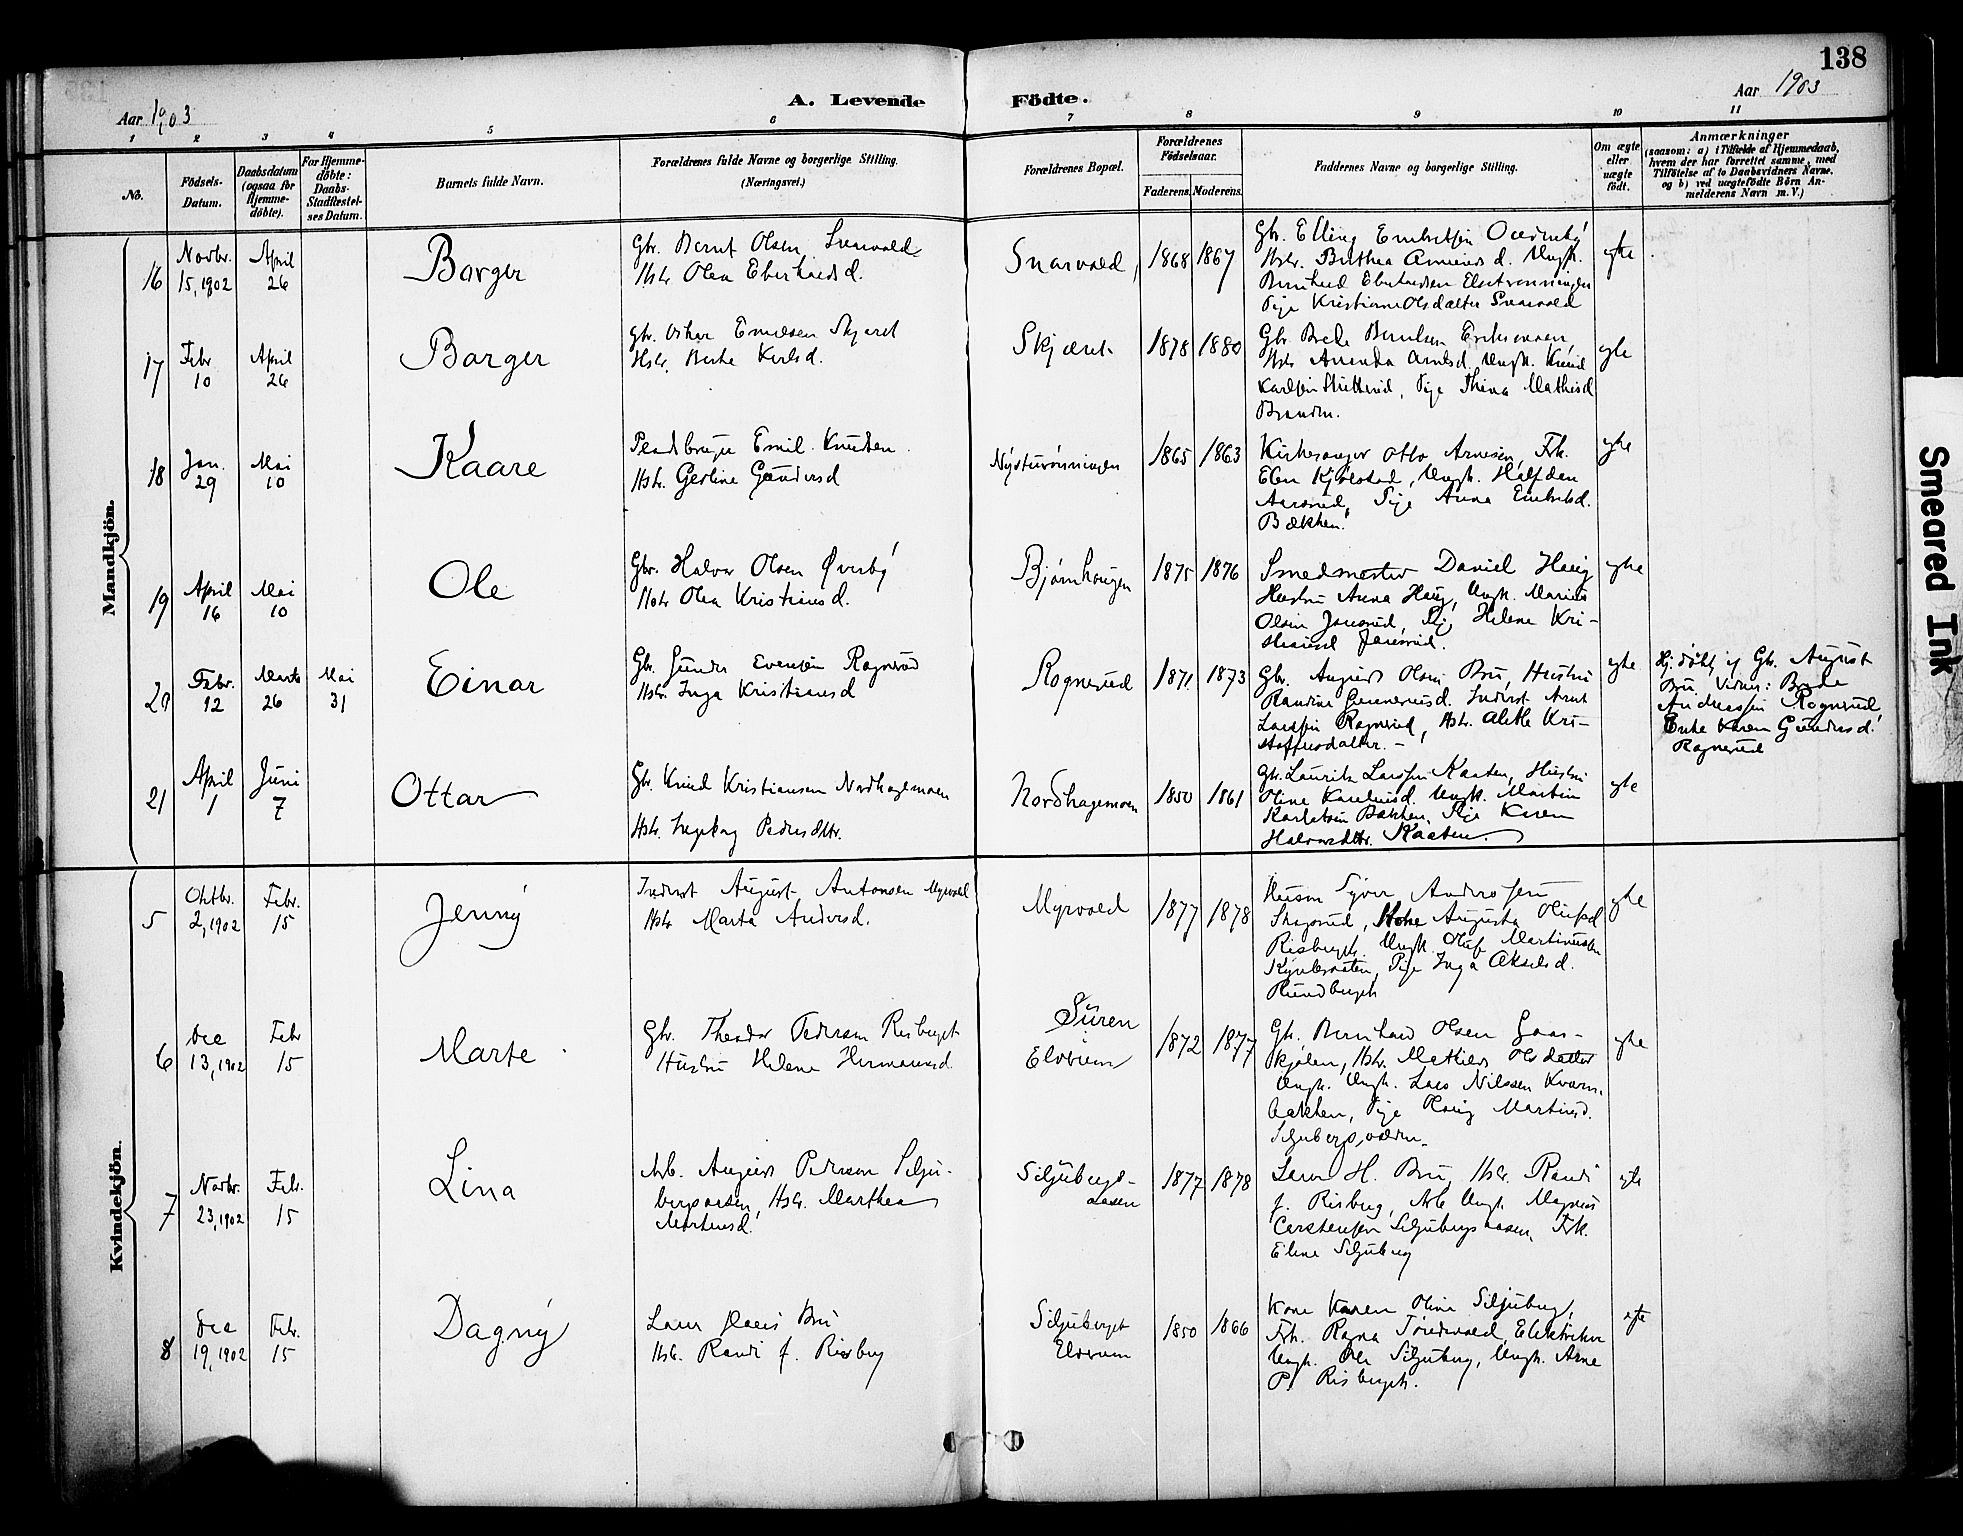 138
Aar 1903
A. Levende Födte.
Aar 1903
1 2 3 4 5 6 7 8 9 10 11
No.
Födsels-
Datum.
Daabsdatum
(ogsaa for
Hjemme-
döbte).
For Hjemme-
döbte:
Daabs-
Stadfæstel-
ses Datum.
Barnets fulde Navn.
Forældrenes fulde Navne og borgerlige Stilling.
(Næringsvei.)
Forældrenes Bopæl.
Forældrenes
Födselsaar.
Faderens. Moderens.
Faddernes Navne og borgerlige Stilling.
Om ægte
eller
uægte
födt.
Anmærkninger
(saasom: a) i Tilfælde af Hjemmedaab,
hvem der har forrettet samme, med
Tilföielse af to Daabsvidners Navne,
og b) ved uægtefödte Börn An-
melderens Navn m. V.)
Mandkjön.
16
Novbr.
15, 1902
April
26
Borger
Gbr. Bernt Olsen Snarvold
Hstr. Olea Eberhardsd.
Snarvold
1868 1867
Gbr. Elling
Hstr. Ungk.
Pige Kristiane Olsdatter Snarvold
ægte
17
Febr
10
April
26
Borger
Gbr. Oskar Skjæret
Hstr. Berte Karlsd.
Skjæret
1878 1880
Gbr. Brede
Hstr. Amanda Ungk. Knud
Pige Thina Mathisd
Brænden.
ægte
18
Jan.
29
Mai
10
Kaare
Pladsbruger Emil Knudsen
Hstr. Gerline Gundersd
Nysturønningen
1865 1863
Kirkesanger Otto Arnesen, Frk.
Ungk. Halfdan
Aarsrud, Pige Anna Embretsd.
Bækken.
ægte
19
April
16
Mai
10
Ole
Gbr. Halvor Olsen Øverby
Hstr Olea Kristiansd.
Bjørnhaugen
1875 1876
Smedmester Daniel Haug
Hustru Anna Haug, Ungk. Marius
Olsen Pige Helene Kri-
stiansd
ægte
20
Febr.
12
Marts
26
Mai
31
Einar
Gbr. Gunder Evensen Rognerud
Hstr. Inga Kristiansd
Rognerud
1871 1873
Gbr. August Olsen Bru, Hustru
Randine Gunnerusd. Inderst Arnt
Larssen Rognerud, Hstr. Alette Kri-
stoffersdatter. -
ægte
Hj. døbt af Gbr. August
Bru. Vidner: Brede
Andreassen Rognerud
Enke Karen Gundersd.
Rognerud
21
April
1
Juni
7
Ottar
Gbr. Knud Kristiansen Nordhagemoen
Hstr. Ingeborg Pedersdtr.
Nordhagemoen
1850 1861
Gbr. Laurits Larssen Kaaten, Hustru
Oline Karelinsd. Ungk. Martin
Bækken, Pige Karen
Halvorsdtr. Kaaten.
ægte
Kvindekjön.
5
Oktbr.
2, 1902
Febr.
15
Jenny
Inderst August Antonsen Myrvold
Hstr Marta Andersd.
Myrvold
1877 1878
Husm Syver Anderssen
Skagsrud, Kone Augusta Olufsd
Risberget. Ungk. Oluf Martinussen
Pige Inga Akselsd.
Rundberget
ægte
6
Dec
13, 1902
Febr
15
Marte
Gbr. Theodor Pedersen Risberget
Hustru Helene Hermansd.
Süren
Elverum
1872 1877
Gbr. Bernhard Olsen Gaas-
kjølen, Hstr. Mathea Olsdatter
Ungk. Ungk. Lars Nilssen Kværn-
bakken, Pige Martinsd.
ægte
7
Novbr.
23, 1902
Febr.
15
Lina
Arb. August Pedersen Silju-
bergaasen, Hstr. Marthea
Martinsd.
Siljubergs-
aasen
1877 1878
Laur H. Bru, Hstr. Randi
f. Risberg, Arb. Ungk. Magnus
Carstensen Siljubergsaasen, Frk.
Eline Siljuberg
ægte
8
Dec
19, 1902
Febr.
15
Dagny
Laur Hans Bru
Hstr. Randi f. Risberg
Siljuberget
Elverum
1850 1866
Kone Karen Oline Siljuberg,
Frk. Ragna Elektriker
Ungk. Ole Siljuberg, Ungk. Arne
P. Risberget.
ægte
Smeared Ink